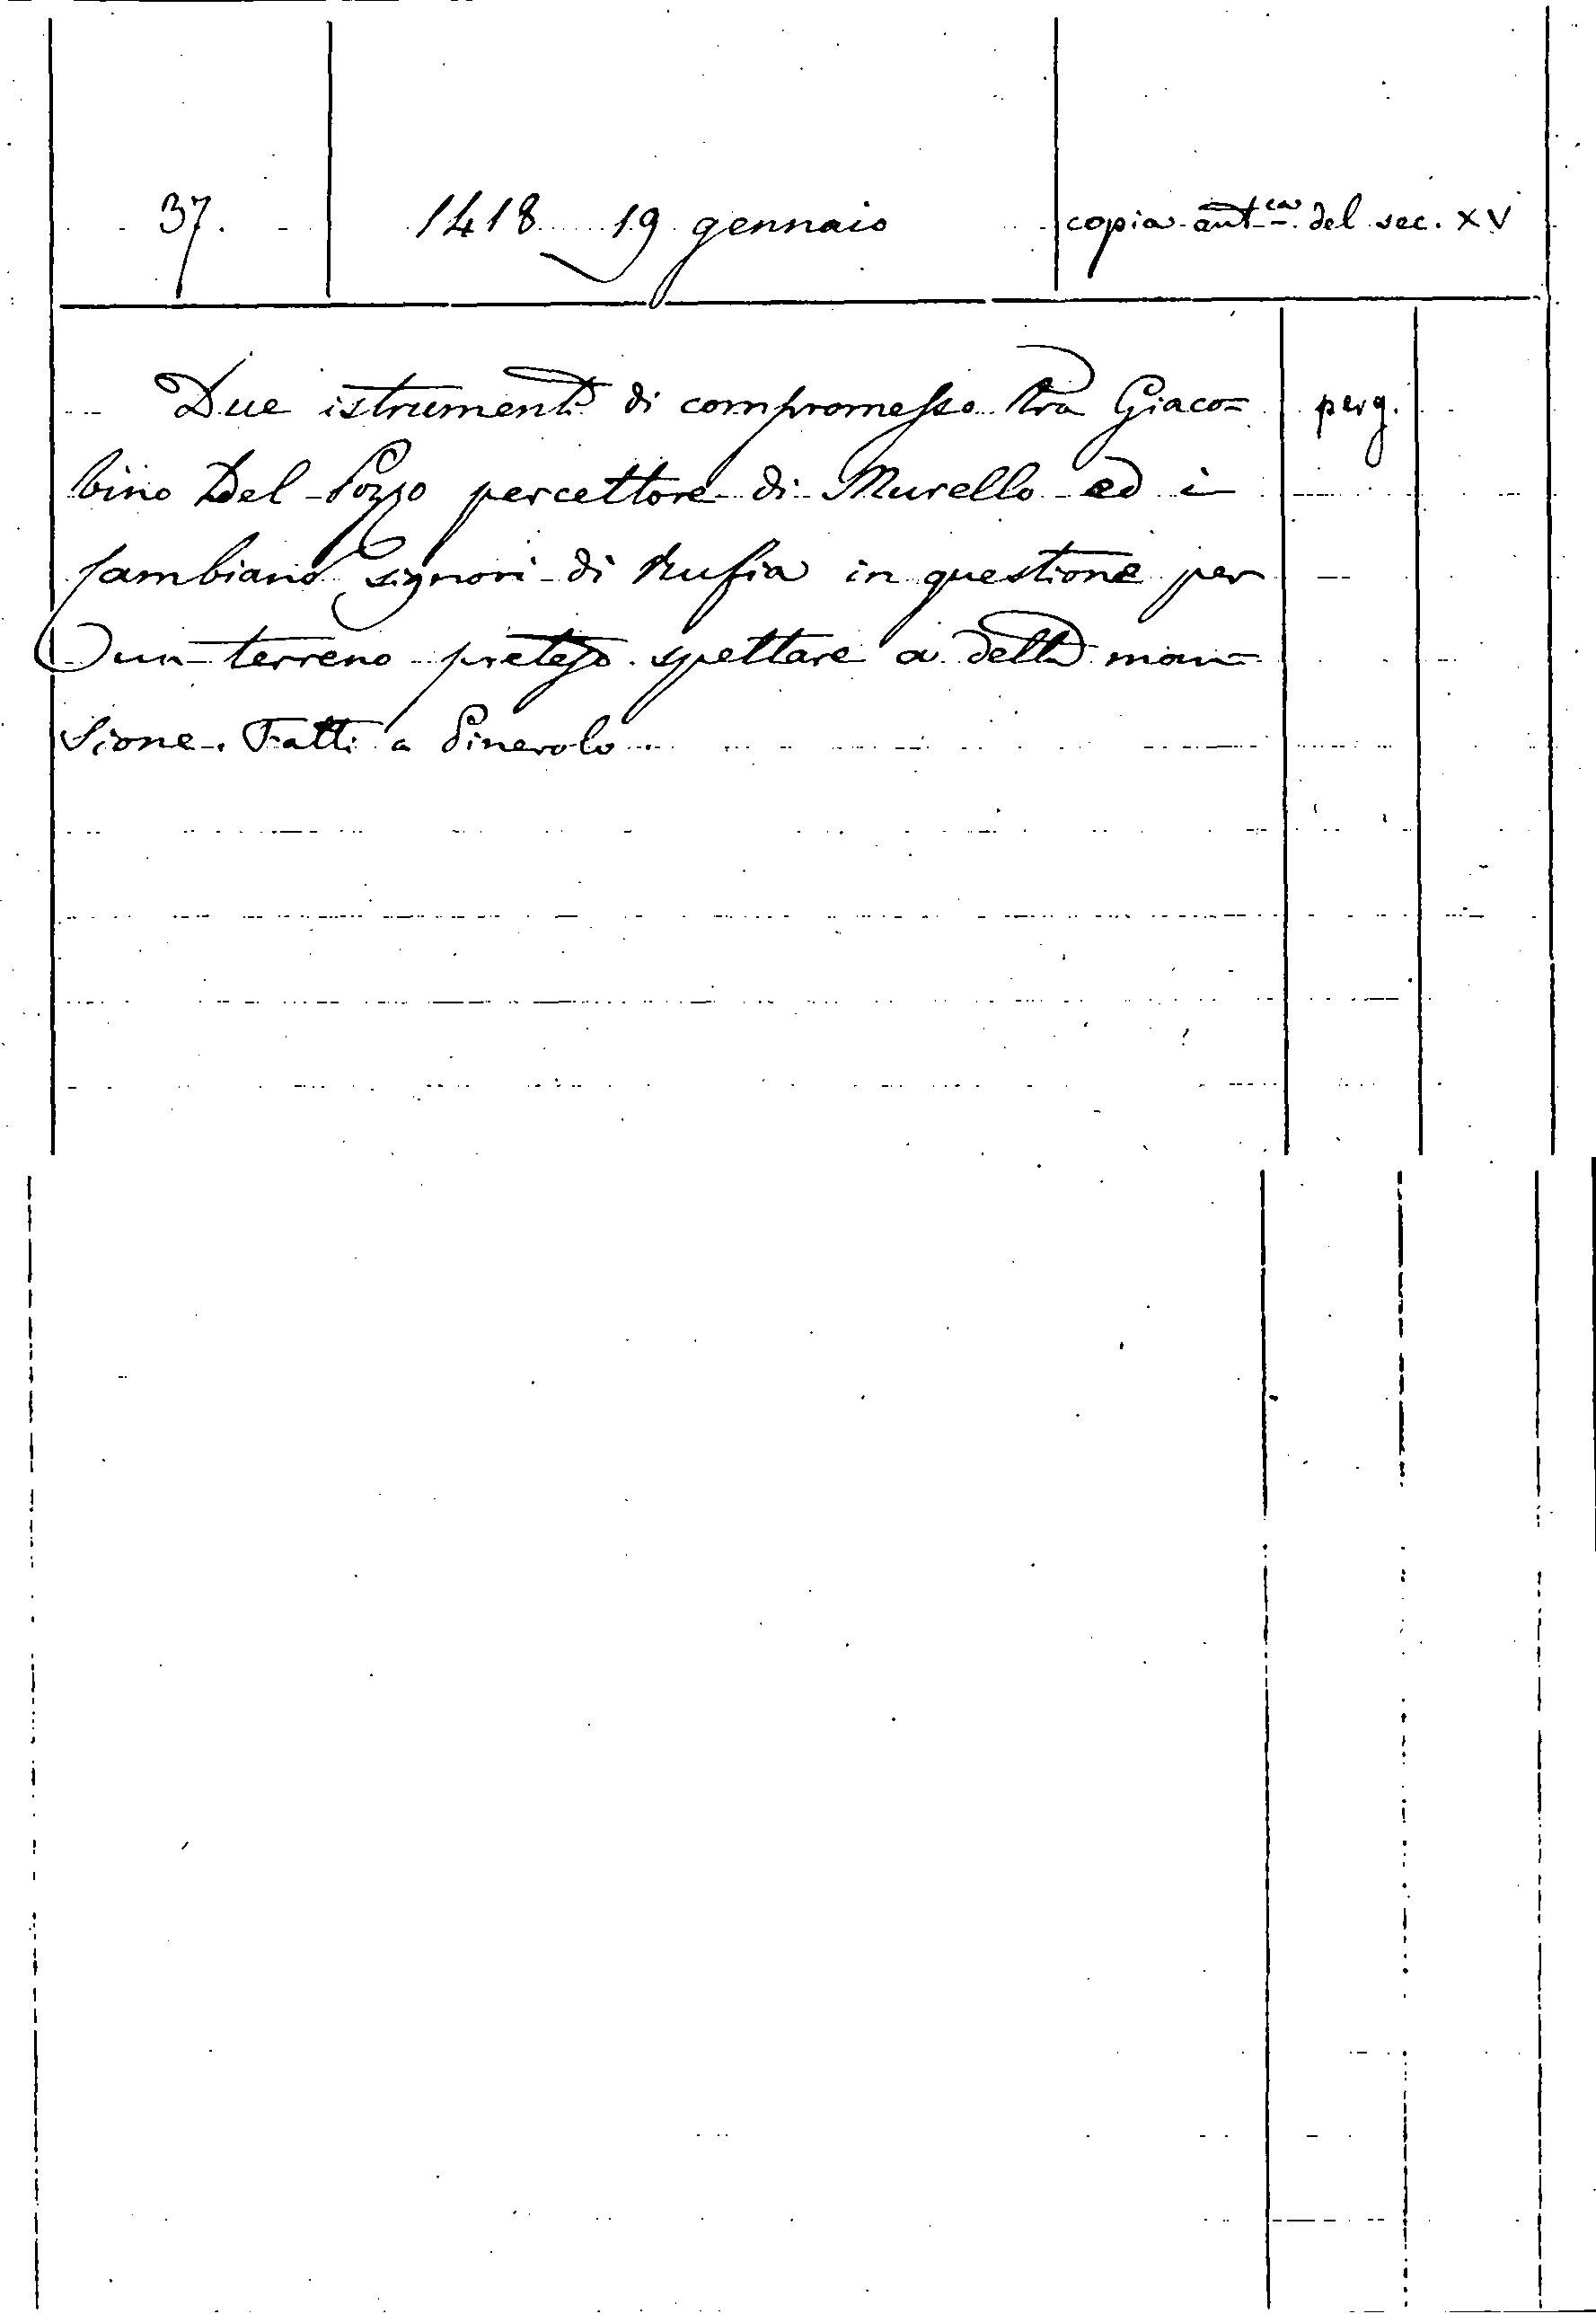 37. 1418 19 gennaio copia aut.ca del sec. XV
Due istrumenti di compromesso tra Giaco=
bino Del Pozzo percettore di Murello ed i
Cambiano signori di Ruffia in questione per
un terreno preteso spettare a detta man=
sione. Fatti a Pinerolo.
perg.